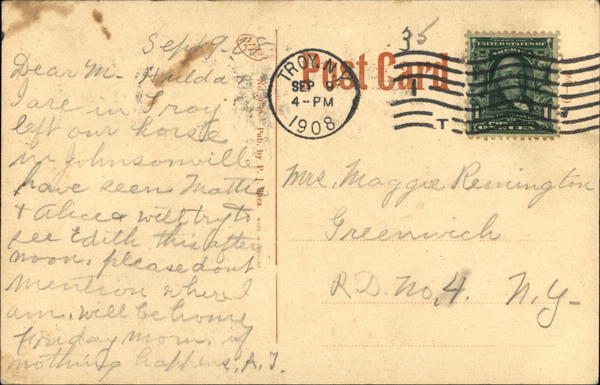 Sept 9 - 08
Dear M - Hulda &
I are in Troy
left our horse
in Johnsonville
have seen Mattie
& Alice & will try to
see Edith this after
noon, please dont
mention where I
am. will be home
Friday morn. if
nothing happens, A. J.
Pub. by P. J.
Post Card
35
TROY, N.Y.
SEP 9
4-PM
1908
1
T
UNITED STATES OF AMERICA
1 ONE CENT 1
Mrs. Maggie Remington
Greenwich
R.D. No. 4. N.Y-